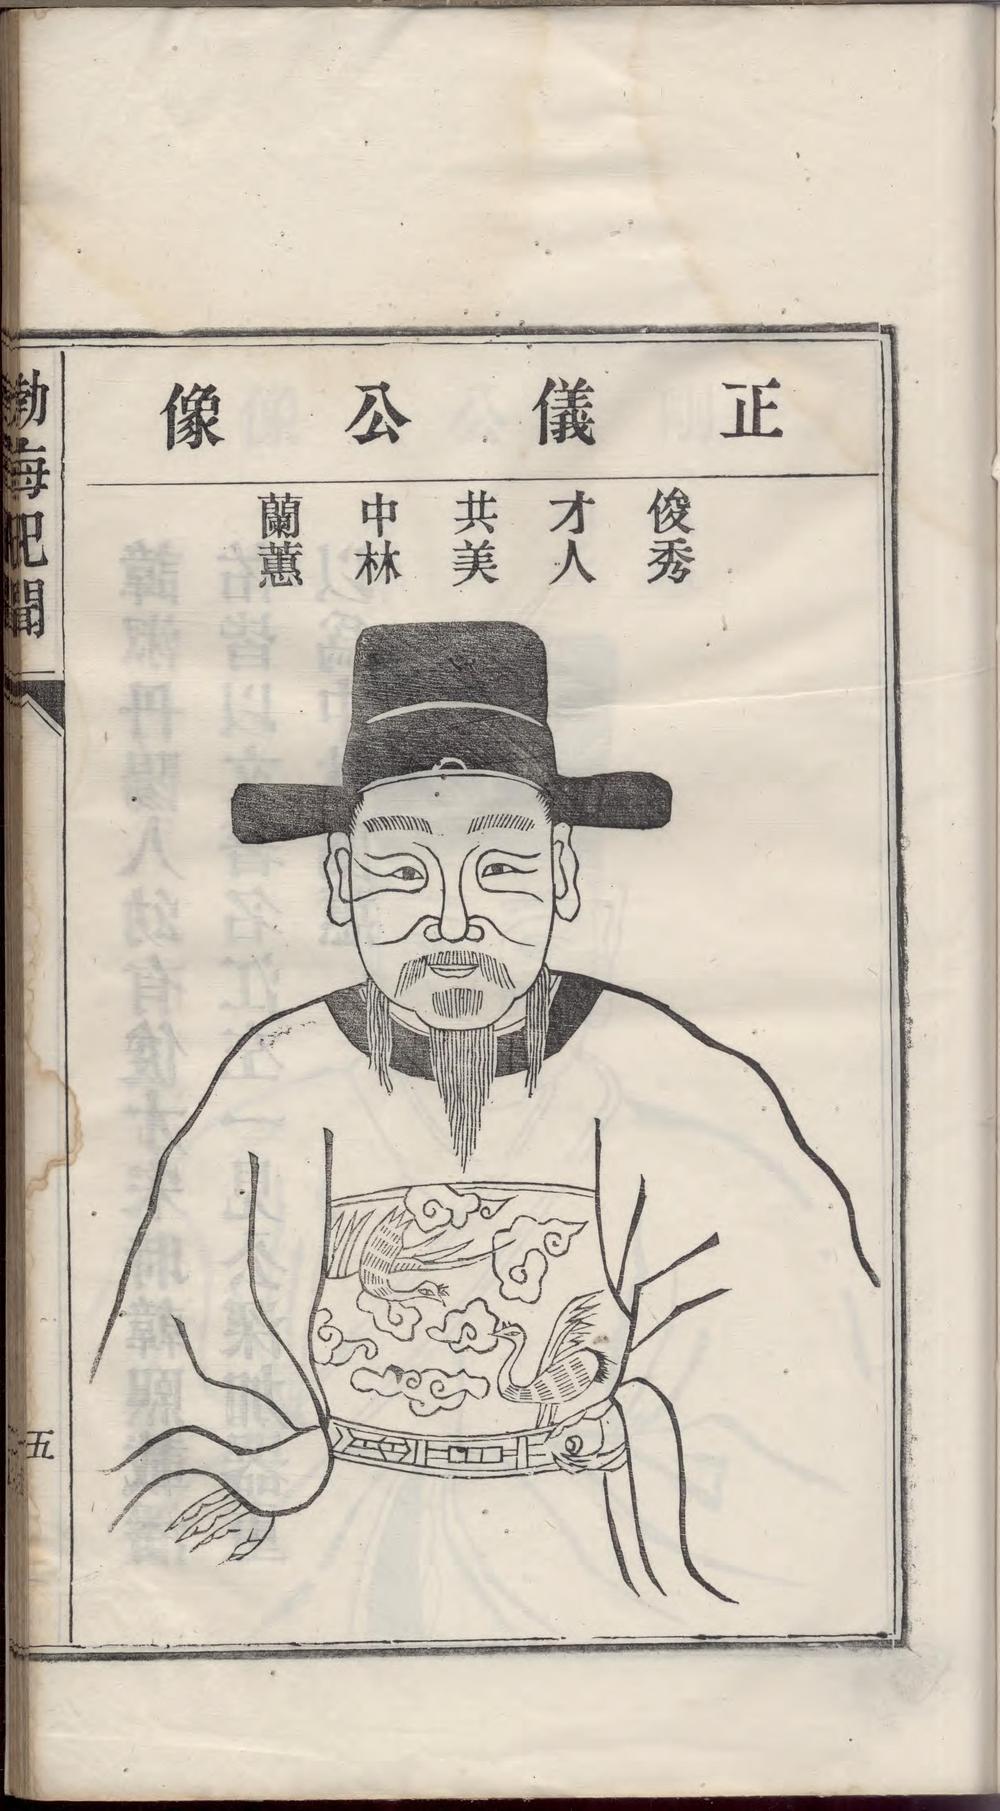 正儀公像
俊秀
才人
共美
中林
蘭蕙
渤海祀聞
五